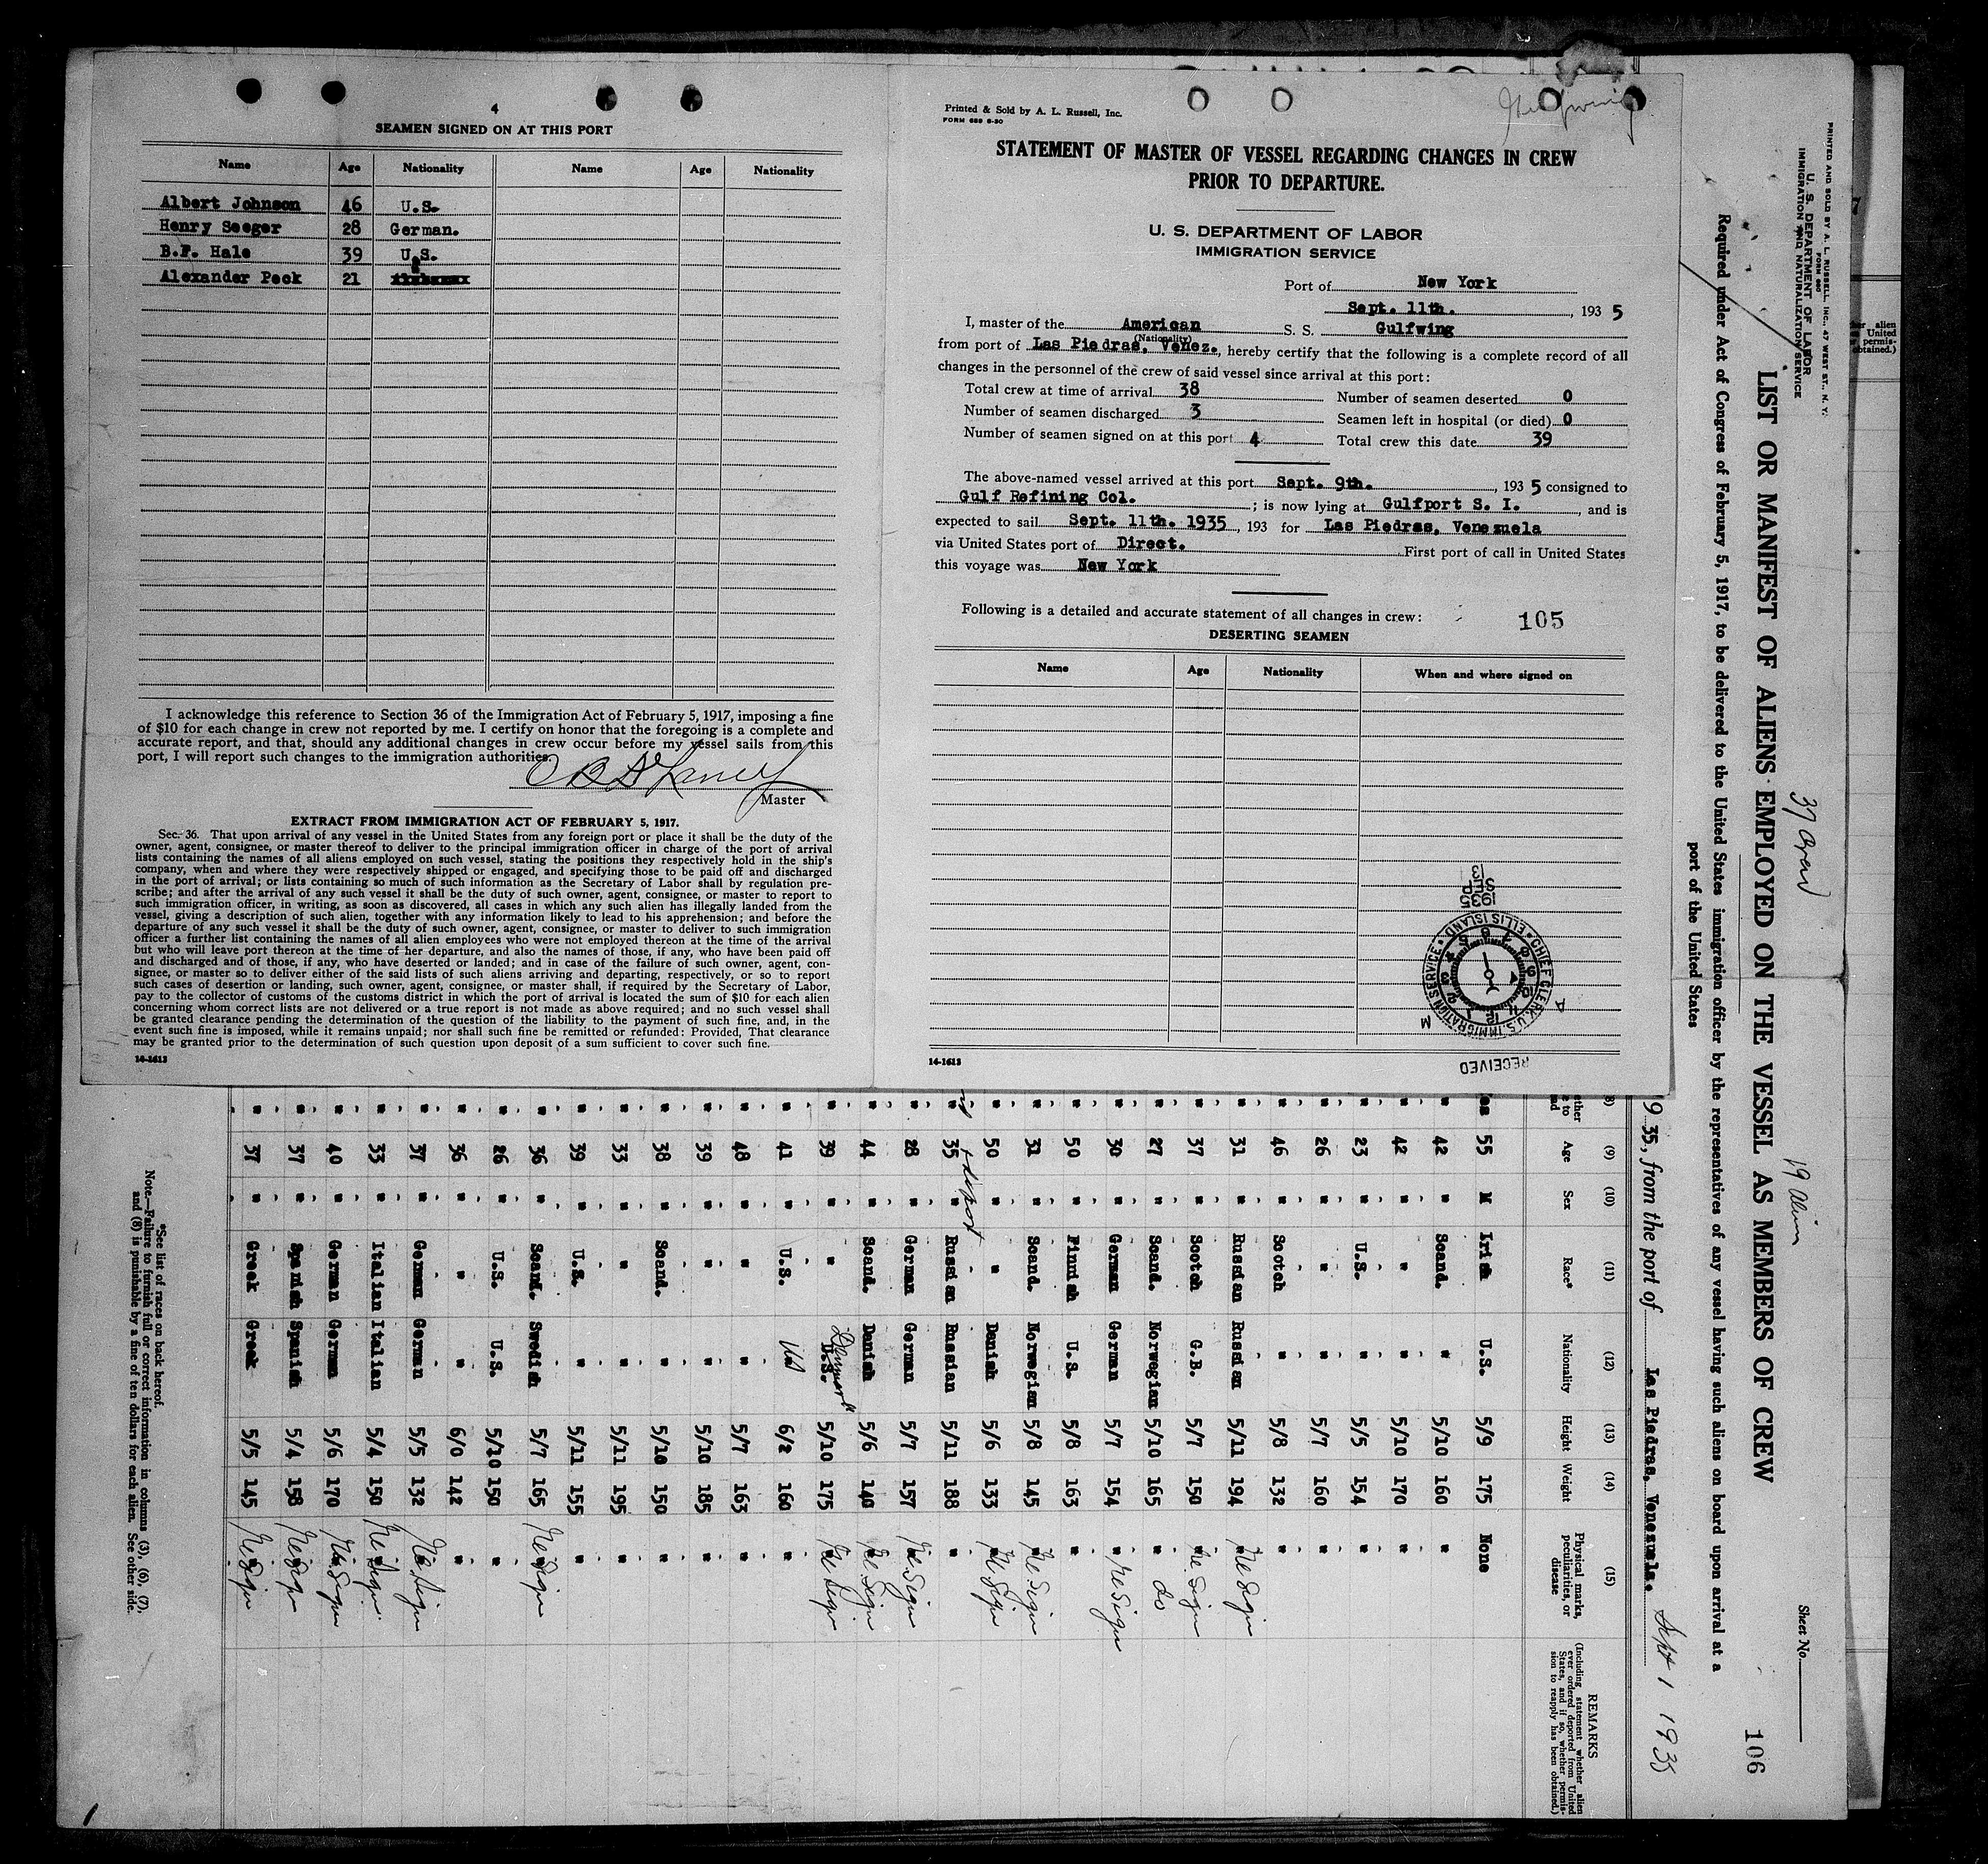 4
SEAMEN SIGNED ON AT THIS PORT
Name Age Nationality Name Age Nationality
Albert Johnson 46 U.S.
Henry Seeger 28 German.
B.F. Hale 39 U.S.
Alexander Peck 21
I acknowledge this reference to Section 36 of the Immigration Act of February 5, 1917, imposing a fine
of $10 for each change in crew not reported by me. I certify on honor that the foregoing is a complete and
accurate report, and that, should any additional changes in crew occur before my vessel sails from this
port, I will report such changes to the immigration authorities.
Master
EXTRACT FROM IMMIGRATION ACT OF FEBRUARY 5, 1917.
Sec. 36. That upon arrival of any vessel in the United States from any foreign port or place it shall be the duty of the
owner, agent, consignee, or master thereof to deliver to the principal immigration officer in charge of the port of arrival
lists containing the names of all aliens employed on such vessel, stating the positions they respectively hold in the ship's
company, when and where they were respectively shipped or engaged, and specifying those to be paid off and discharged
in the port of arrival; or lists containing so much of such information as the Secretary of Labor shall by regulation pre-
scribe; and after the arrival of any such vessel it shall be the duty of such owner, agent, consignee, or master to report to
such immigration officer, in writing, as soon as discovered, all cases in which any such alien has illegally landed from the
vessel, giving a description of such alien, together with any information likely to lead to his apprehension; and before the
departure of any such vessel it shall be the duty of such owner, agent, consignee, or master to deliver to such immigration
officer a further list containing the names of all alien employees who were not employed thereon at the time of the arrival
but who will leave port thereon at the time of her departure, and also the names of those, if any, who have been paid off
and discharged and of those, if any, who have deserted or landed; and in case of the failure of such owner, agent, con-
signee, or master so to deliver either of the said lists of such aliens arriving and departing, respectively, or so to report
such cases of desertion or landing, such owner, agent, consignee, or master shall, if required by the Secretary of Labor,
pay to the collector of customs of the customs district in which the port of arrival is located the sum of $10 for each alien
concerning whom correct lists are not delivered or a true report is not made as above required; and no such vessel shall
be granted clearance pending the determination of the question of the liability to the payment of such fine, and, in the
event such fine is imposed, while it remains unpaid; nor shall such fine be remitted or refunded: Provided, That clearance
may be granted prior to the determination of such question upon deposit of a sum sufficient to cover such fine.
14-1613
Printed & Sold by A. L. Russell, Inc.
FORM 689 6-30
STATEMENT OF MASTER OF VESSEL REGARDING CHANGES IN CREW
PRIOR TO DEPARTURE.
U. S. DEPARTMENT OF LABOR
IMMIGRATION SERVICE
Port of New York
Sept. 11th., 1935
I, master of the American S. S. Gulfwing
(Nationality)
from port of Las Piedras, Venez., hereby certify that the following is a complete record of all
changes in the personnel of the crew of said vessel since arrival at this port:
Total crew at time of arrival 38 Number of seamen deserted 0
Number of seamen discharged 3 Seamen left in hospital (or died) 0
Number of seamen signed on at this port 4 Total crew this date 39
The above-named vessel arrived at this port Sept. 9th., 1935 consigned to
Gulf Refining Col. ; is now lying at Gulfport S. I. , and is
expected to sail Sept. 11th. 1935, 193 for Las Piedras, Venezuela
via United States port of Direct. First port of call in United States
this voyage was New York
Following is a detailed and accurate statement of all changes in crew: 105
DESERTING SEAMEN
Name Age Nationality When and where signed on
1935
SEP
13
CHIEF CLERK U.S. IMMIGRATION SERVICE • ELLIS ISLAND
RECEIVED
14-1613
PRINTED AND SOLD BY A. L. RUSSELL, INC., 47 WEST ST., N. Y.
FORM 680
U. S. DEPARTMENT OF LABOR
IMMIGRATION AND NATURALIZATION SERVICE
Sheet No.
37 crew
19 alien
LIST OR MANIFEST OF ALIENS EMPLOYED ON THE VESSEL AS MEMBERS OF CREW
106
Required under Act of Congress of February 5, 1917, to be delivered to the United States immigration officer by the representatives of any vessel having such aliens on board upon arrival at a
port of the United States
9 35, from the port of Las Piedras, Venezuela. Sept 1 1935
(9) (10) (11) (12) (13) (14) (15)
Age Sex Race* Nationality Height Weight Physical marks, peculiarities, or disease
REMARKS
(Including statement whether alien
ever ordered deported from United
States, and if so, whether permis-
sion to reapply has been obtained.)
55 M Irish U.S. 5/9 175 None
42 " Scand. " 5/10 160 "
42 " " " 5/10 170 "
23 " U.S. " 5/5 154 "
26 " " " 5/7 160 "
46 " Scotch " 5/8 132 "
31 " Russian Russian 5/11 194 "
37 " Scotch G.B. 5/7 150 "
27 " Scand. Norwegian 5/10 165 " do
30 " German German 5/7 154 "
50 " Finnish U.S. 5/8 163 "
31 " Scand. Norwegian 5/8 145 "
50 " " Danish 5/6 133 "
35 " Russian Russian 5/11 188 "
28 " German German 5/7 157 "
44 " Scand. Danish 5/6 140 "
39 " " U.S. 5/10 175 "
41 " U.S. 6/2 160 "
48 " " " 5/7 163 "
39 " " " 5/10 185 "
38 " Scand. " 5/10 150 "
33 " " " 5/11 195 "
39 " U.S. " 5/11 155 "
36 " Scand. Swedish 5/7 165 "
26 " U.S. U.S. 5/10 150 "
36 " " " 6/0 142 "
37 " German German 5/5 132 "
33 " Italian Italian 5/4 150 "
40 " German German 5/6 170 "
37 " Spanish Spanish 5/4 158 "
37 " Greek Greek 5/5 145 "
*See list of races on back hereof.
Note.—Failure to furnish full or correct information in columns (3), (6), (7),
and (8) is punishable by a fine of ten dollars for each alien. See other side.